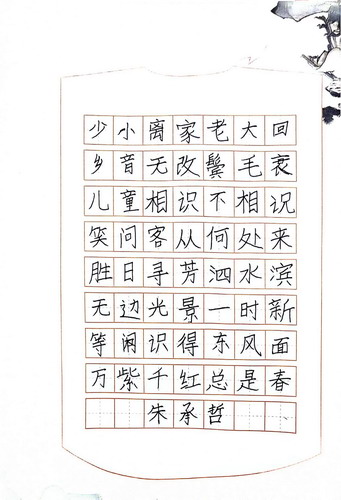 少小离家老大回
乡音无改鬓毛衰
儿童相识不相识
笑问客从何处来
胜日寻芳泗水滨
无边光景一时新
等闲识得东风面
万紫千红总是春
朱承哲